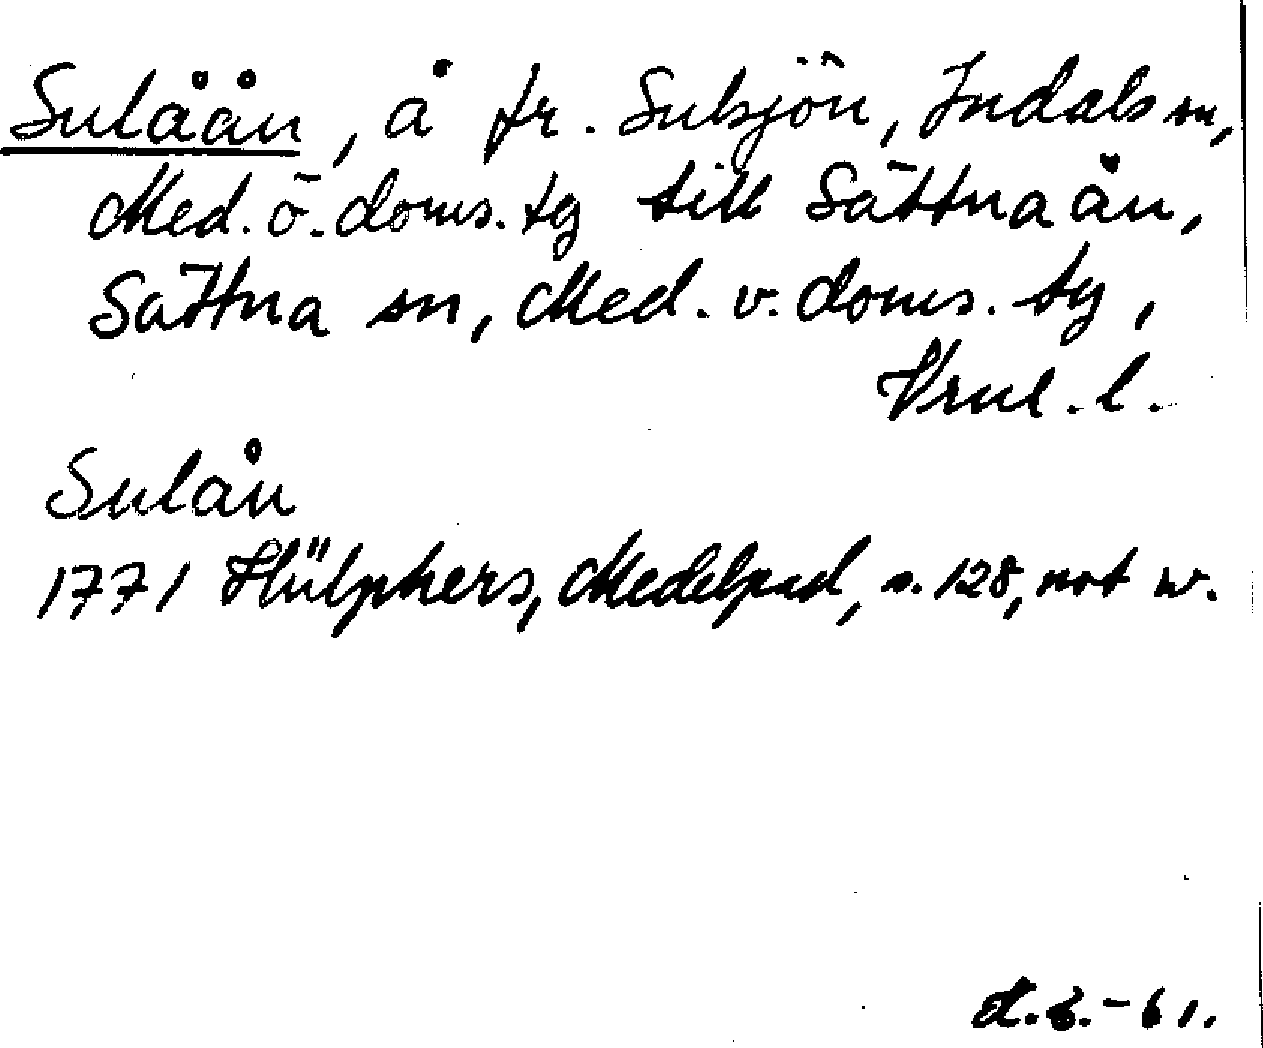 Sulåån, å fr. Sulsjön, Indals sn,
Med. ö. doms. tg till Sättnaån,
Sättna sn, Med. v. doms. tg,
Vrnl. l.
Sulån
1771 Hülphers, Medelpad, s. 128, not w.
-61.